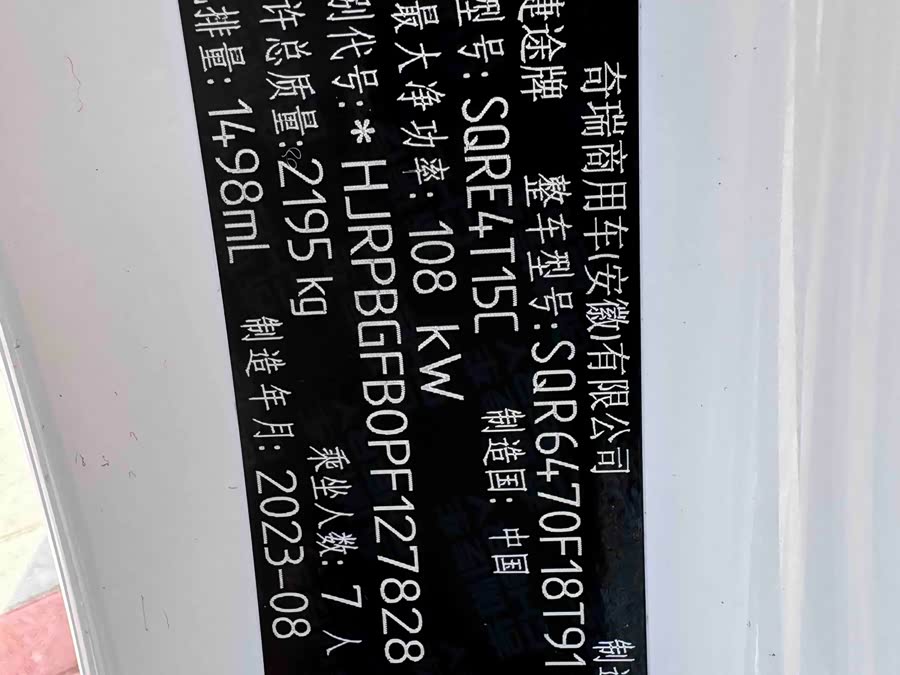 奇瑞商用车(安徽)有限公司 制造
途牌 整车型号:SQR6470F18T91
型号:SQRE4T15C 制造国:中国
最大净功率:108 kW
别代号:*HJRPBGFB0PF127828
许总质量:2195 kg 乘坐人数:7人
排量:1498mL 制造年月:2023-08